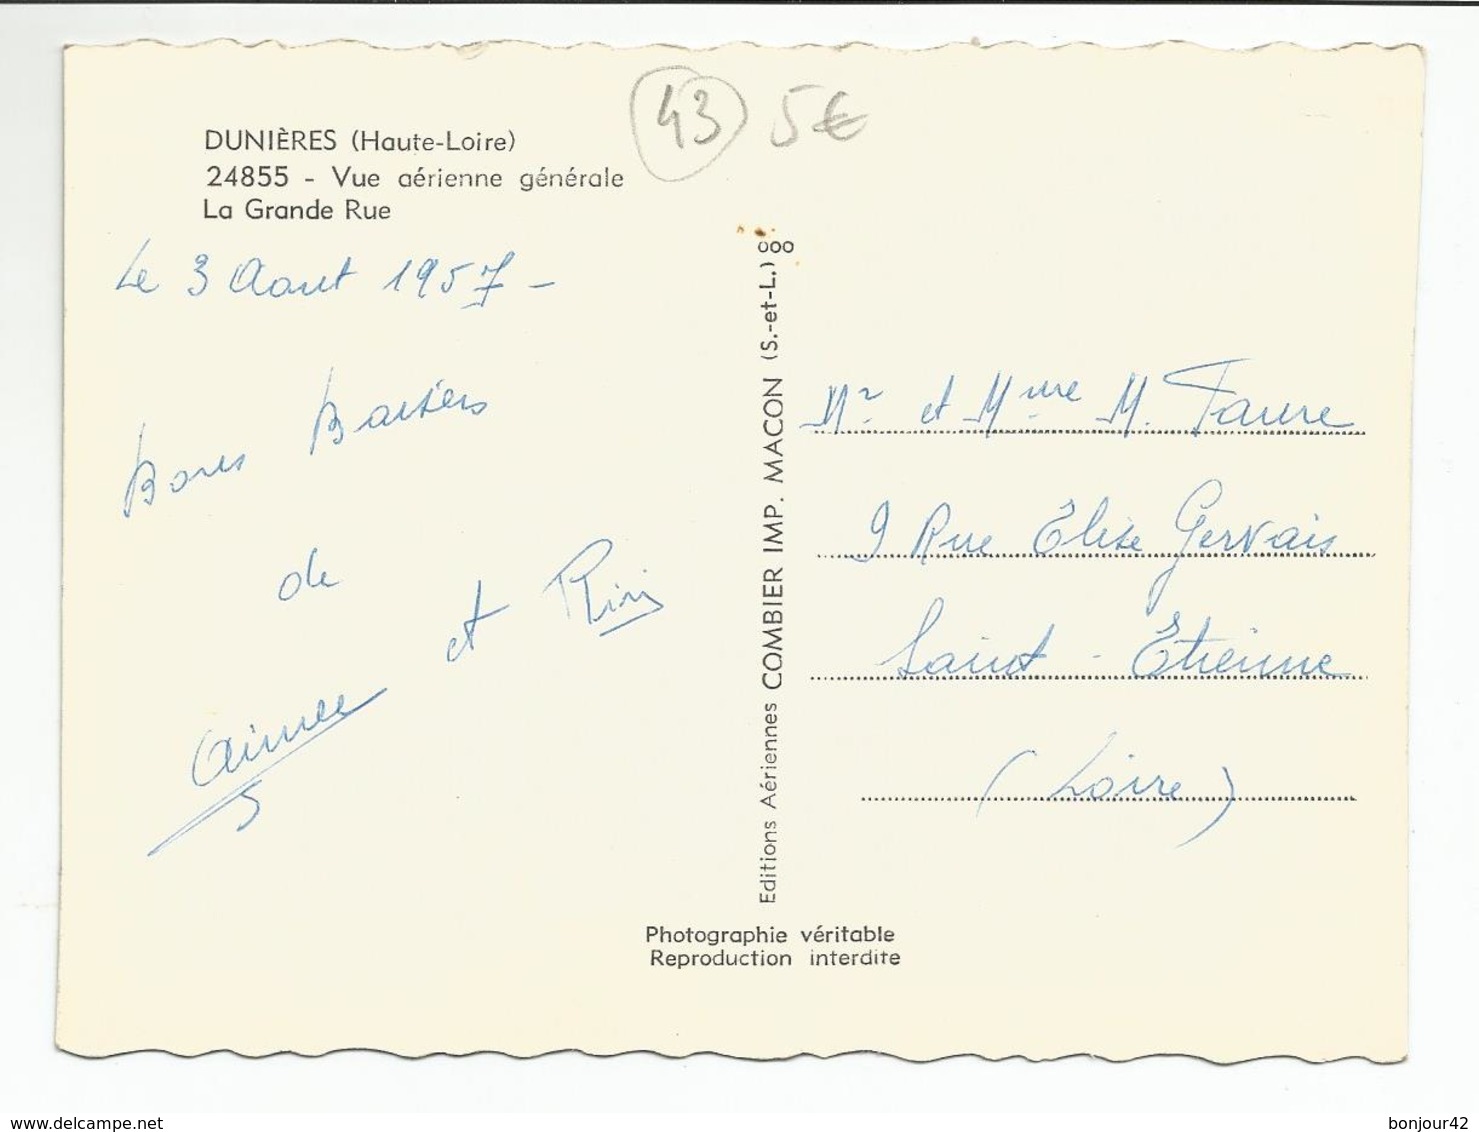 43 5€
DUNIÈRES (Haute-Loire)
24855 - Vue aérienne générale
La Grande Rue
Le 3 Aout 1957 -
Bons Baisers
de
Aimée et Riri
Editions Aériennes COMBIER IMP. MACON (S.-et-L.) 000
Mr et Mme M. Faure
9 Rue Elise Gervais
Saint - Etienne
( Loire )
Photographie véritable
Reproduction interdite
www.delcampe.net
bonjour42